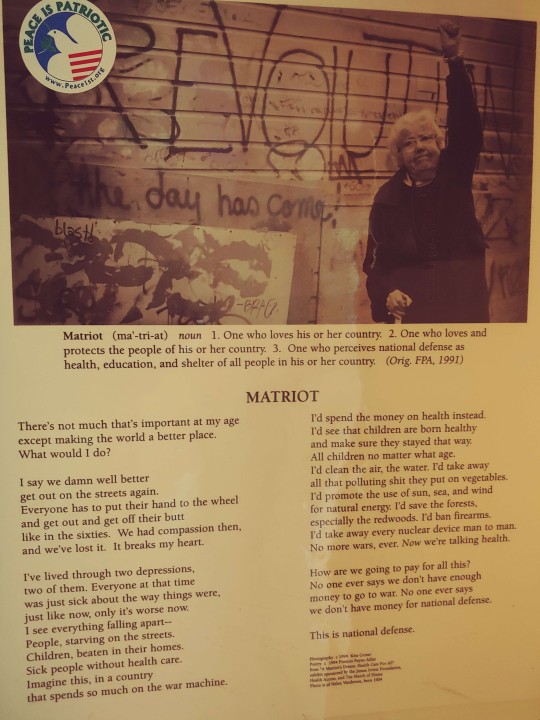 PEACE IS PATRIOTIC
www.Peace1st.org
REVOlUTION
the day has come,
blast!
Matriot (ma'-tri-at) noun 1. One who loves his or her country. 2. One who loves and
protects the people of his or her country. 3. One who perceives national defense as
health, education, and shelter of all people in his or her country. (Orig. FPA, 1991)
MATRIOT
There's not much that's important at my age
except making the world a better place.
What would I do?
I say we damn well better
get out on the streets again.
Everyone has to put their hand to the wheel
and get out and get off their butt
like in the sixties. We had compassion then,
and we've lost it. It breaks my heart.
I've lived through two depressions,
two of them. Everyone at that time
was just sick about the way things were,
just like now, only it's worse now.
I see everything falling apart--
People, starving on the streets.
Children, beaten in their homes.
Sick people without health care.
Imagine this, in a country
that spends so much on the war machine.
I'd spend the money on health instead.
I'd see that children are born healthy
and make sure they stayed that way.
All children no matter what age.
I'd clean the air, the water. I'd take away
all that polluting shit they put on vegetables.
I'd promote the use of sun, sea, and wind
for natural energy. I'd save the forests,
especially the redwoods. I'd ban firearms.
I'd take away every nuclear device man to man.
No more wars, ever. Now we're talking health.
How are we going to pay for all this?
No one ever says we don't have enough
money to go to war. No one ever says
we don't have money for national defense.
This is national defense.